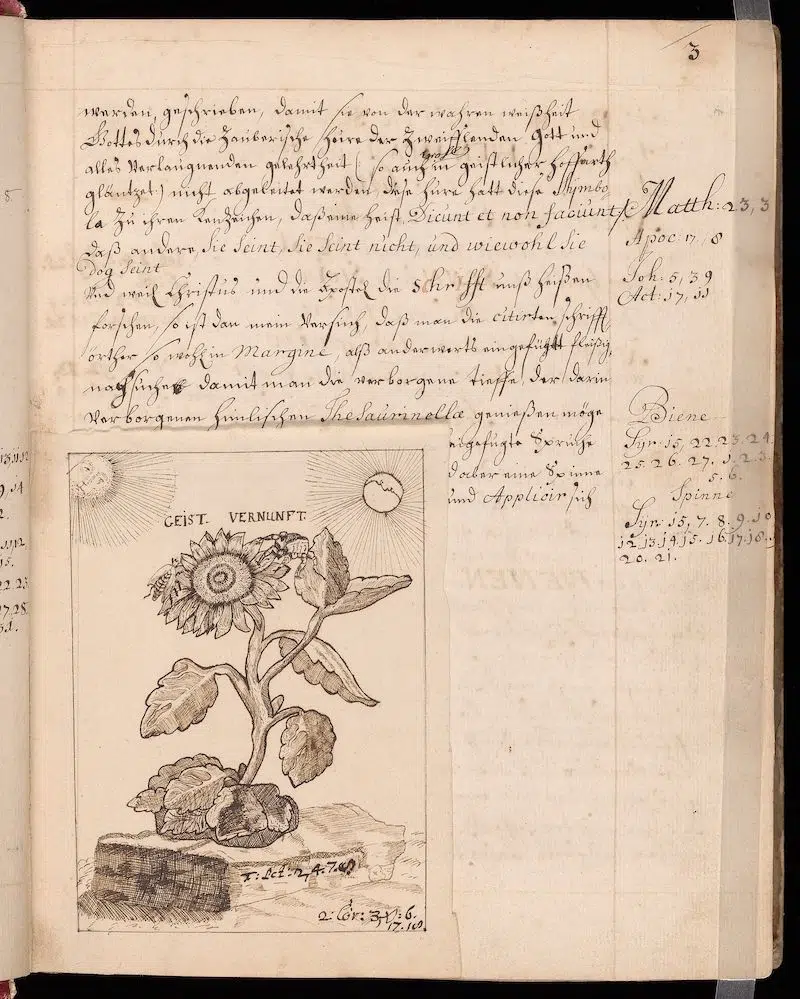 3
werden, geschrieben, damit sie von der wahren weißheit
Gottes durch die Zauberische Hure der Zweifflenden Gott und
alles Verlaugnenden gelehrtheit (so auch in geistlicher hoffarth
gläntzet:) nicht abgeleitet werden, dese hure hatt diese Symbo
la zu ihren Kenzeichen, daß eine heist, Dicunt et non faciunt,
daß andere, Sie Seint, Sie Seint nicht, und wiewohl Sie
dog Seint
Und weil Christus und die Apostel die Schrifft unß heißen
forschen, so ist dan mein Versuch, daß man die citirten schrifft
örther so wohl in Margine, alß anderwerts eingefügtt fleißig
nachsuche damit man die verborgene tieffe, der darin
Verborgenen himlischen Thesaurinellæ genießen möge
Sprüche
aber eine Spinne
und Applicir sich
Matth: 23, 3
Apoc: 17, 8
Joh: 5, 39
Act: 17, 11
Biene
Syr: 15, 22. 23. 24
25. 26. 27. 1. 2. 3.
5. 6.
Spinne
Syr: 15, 7. 8. 9. 10
12. 13. 14. 15. 16. 17. 18.
20. 21.
GEIST. VERNUNFT.
2: Cor: 3, 6.
17. 18.
8.